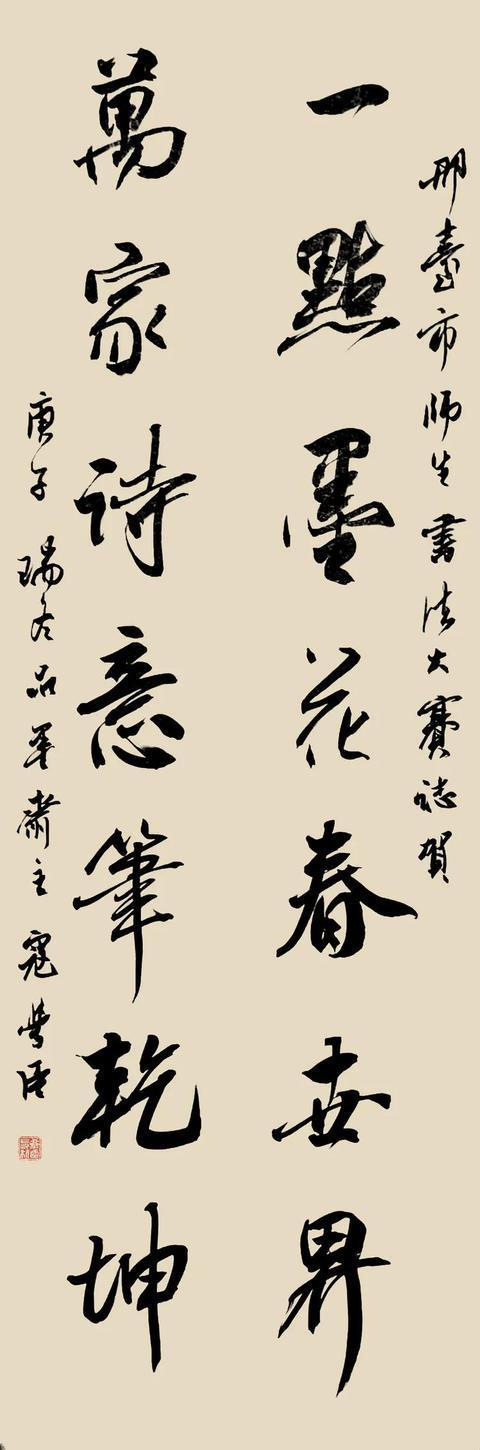 邢臺市师生書法大賽誌賀
一點墨花春世界
萬家诗意筆乾坤
庚子 瑞居品军齋主 寇學臣